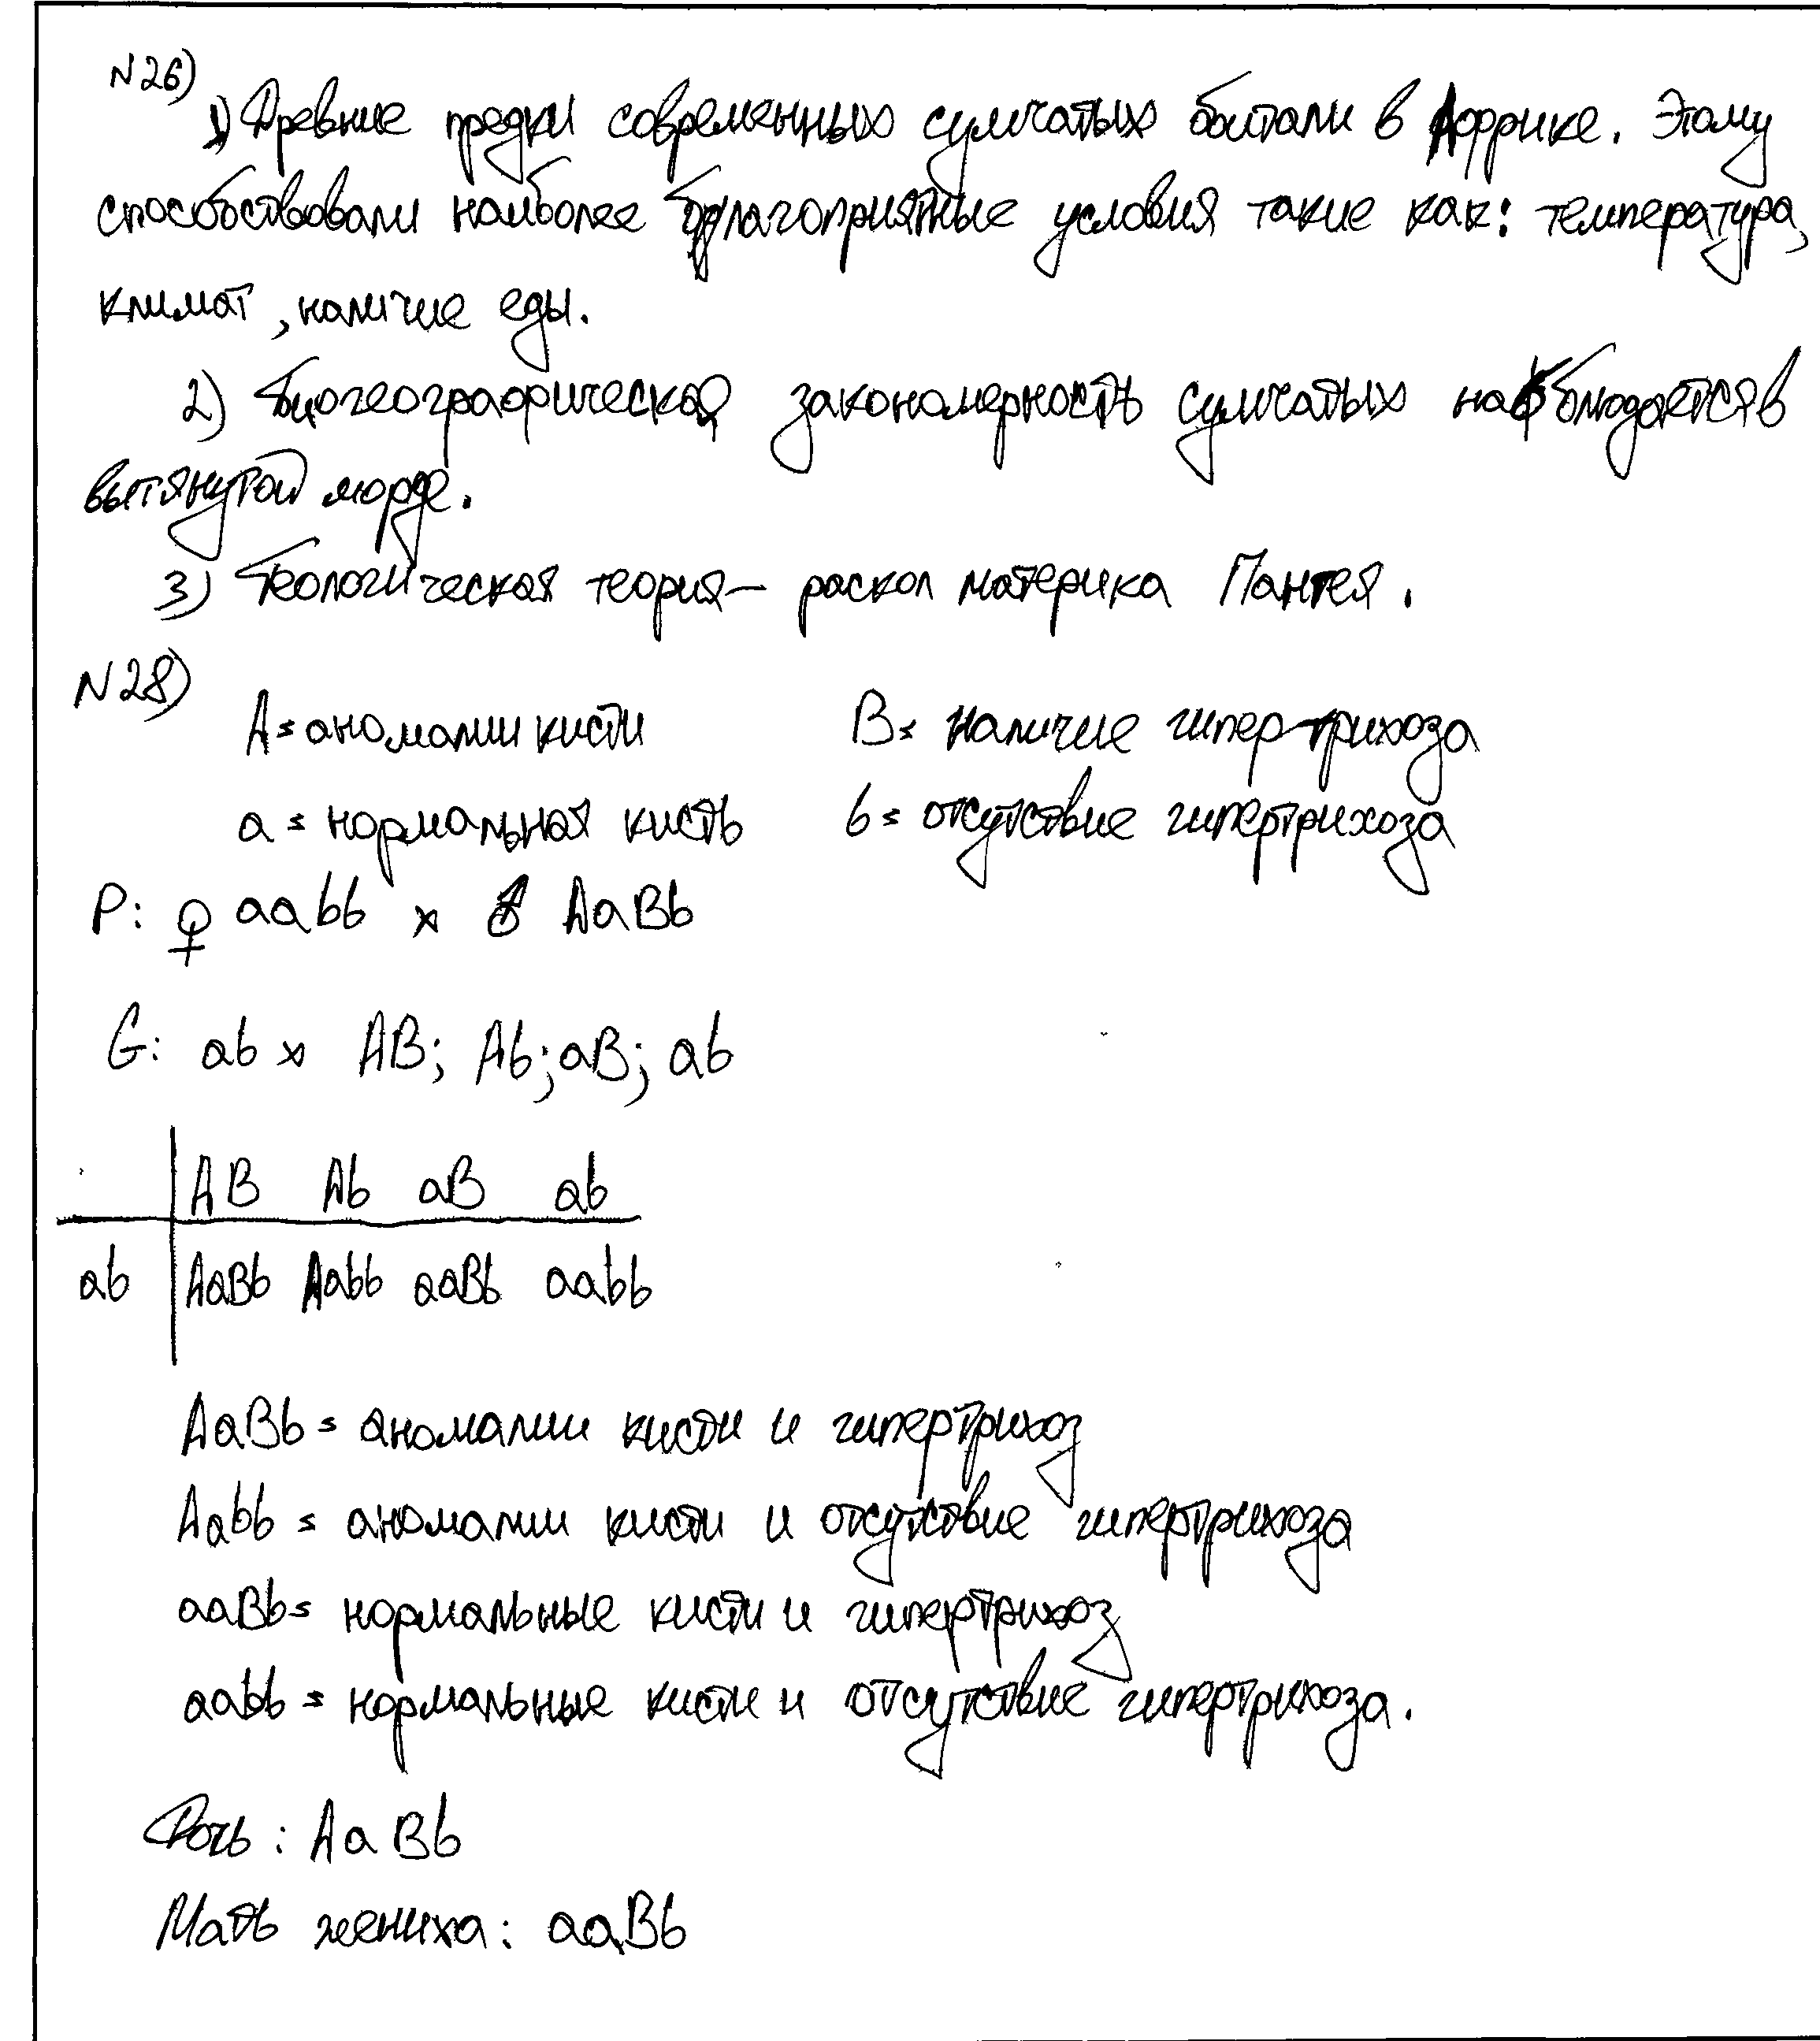 N26)
1) Древние предки современных сумчатых обитали в Аффрике. Этому
способствовали наиболее благоприятные условия такие как: температура,
климат, наличие еды.
2) Биогеографическая закономерность сумчатых наблюдается в
вытянутой морде.
3) Геологическая теория — раскол материка Пангея.
N28)
A = аномалии кисти B = наличие гипертрихоза
a = нормальная кисть b = отсутствие гипертрихоза
P: ♀ aabb × ♂ AaBb
G: ab × AB; Ab; aB; ab
AB Ab aB ab
ab AaBb Aabb aaBb aabb
AaBb = аномалии кисти и гипертрихоз
Aabb = аномалии кисти и отсутствие гипертрихоза
aaBb = нормальные кисти и гипертрихоз
aabb = нормальные кисти и отсутствие гипертрихоза.
Дочь: AaBb
Мать жениха: aaBb